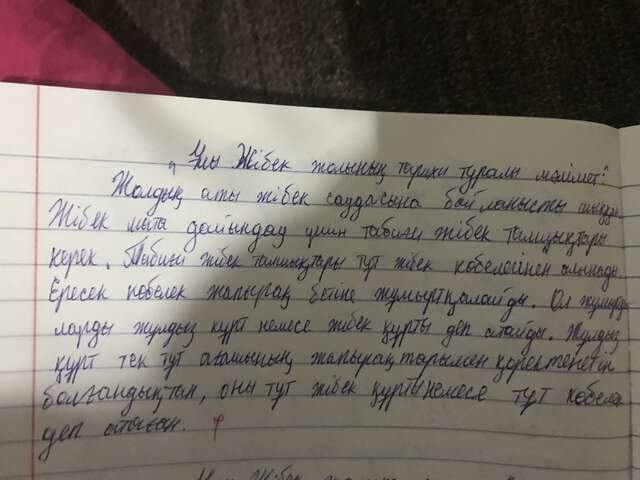 „Ұлы Жібек жолының тарихы туралы мәлімет"
Жолдың аты жібек саудасына байланысты шыққан.
Жібек мата дайындау үшін табиғи жібек талшықтары
керек. Табиғи жібек талшықтары тұт жібек көбелегінен алынады.
Ересек көбелек жапырақ бетіне жұмыртқалайды. Ол жұмыртқа
ларды жұлдыз құрт немесе жібек құрты деп атайды. Жұлдыз
құрт тек тұт ағашының жапырақтарымен қоректенетін
болғандықтан, оны тұт жібек құрты немесе тұт көбелек
деп атаған.
Ұлы Жібек